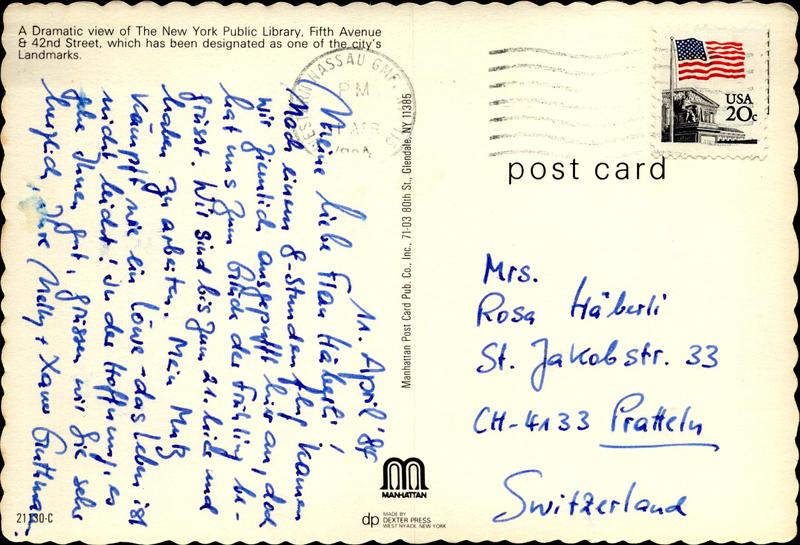 A Dramatic view of The New York Public Library, Fifth Avenue
& 42nd Street, which has been designated as one of the city's
Landmarks.
11. April '84
Meine liebe Frau Häberli!
Nach einem 8-Stundenflug kamen
wir ziemlich ausgepufft hier an, doch
hat uns zum Glück der Frühling be-
grüsst. Wir sind bis zum 21. hier und
haben zu arbeiten. Mein Mutz
kämpft wie ein Löwe - das Leben ist
nicht leicht! In der Hoffnung, es
gehe Ihnen gut, grüssen wir Sie sehr
herzlich, Ihre Nelly + Xaver
21130-C
Manhattan Post Card Pub. Co., Inc., 71-03 80th St., Glendale, NY 11385
MANHATTAN
dp MADE BY
DEXTER PRESS
WEST NYACK, NEW YORK
NASSAU GMF
PM
USA
20c
post card
Mrs.
Rosa Häberli
St. Jakobstr. 33
CH-4133 Pratteln
Switzerland